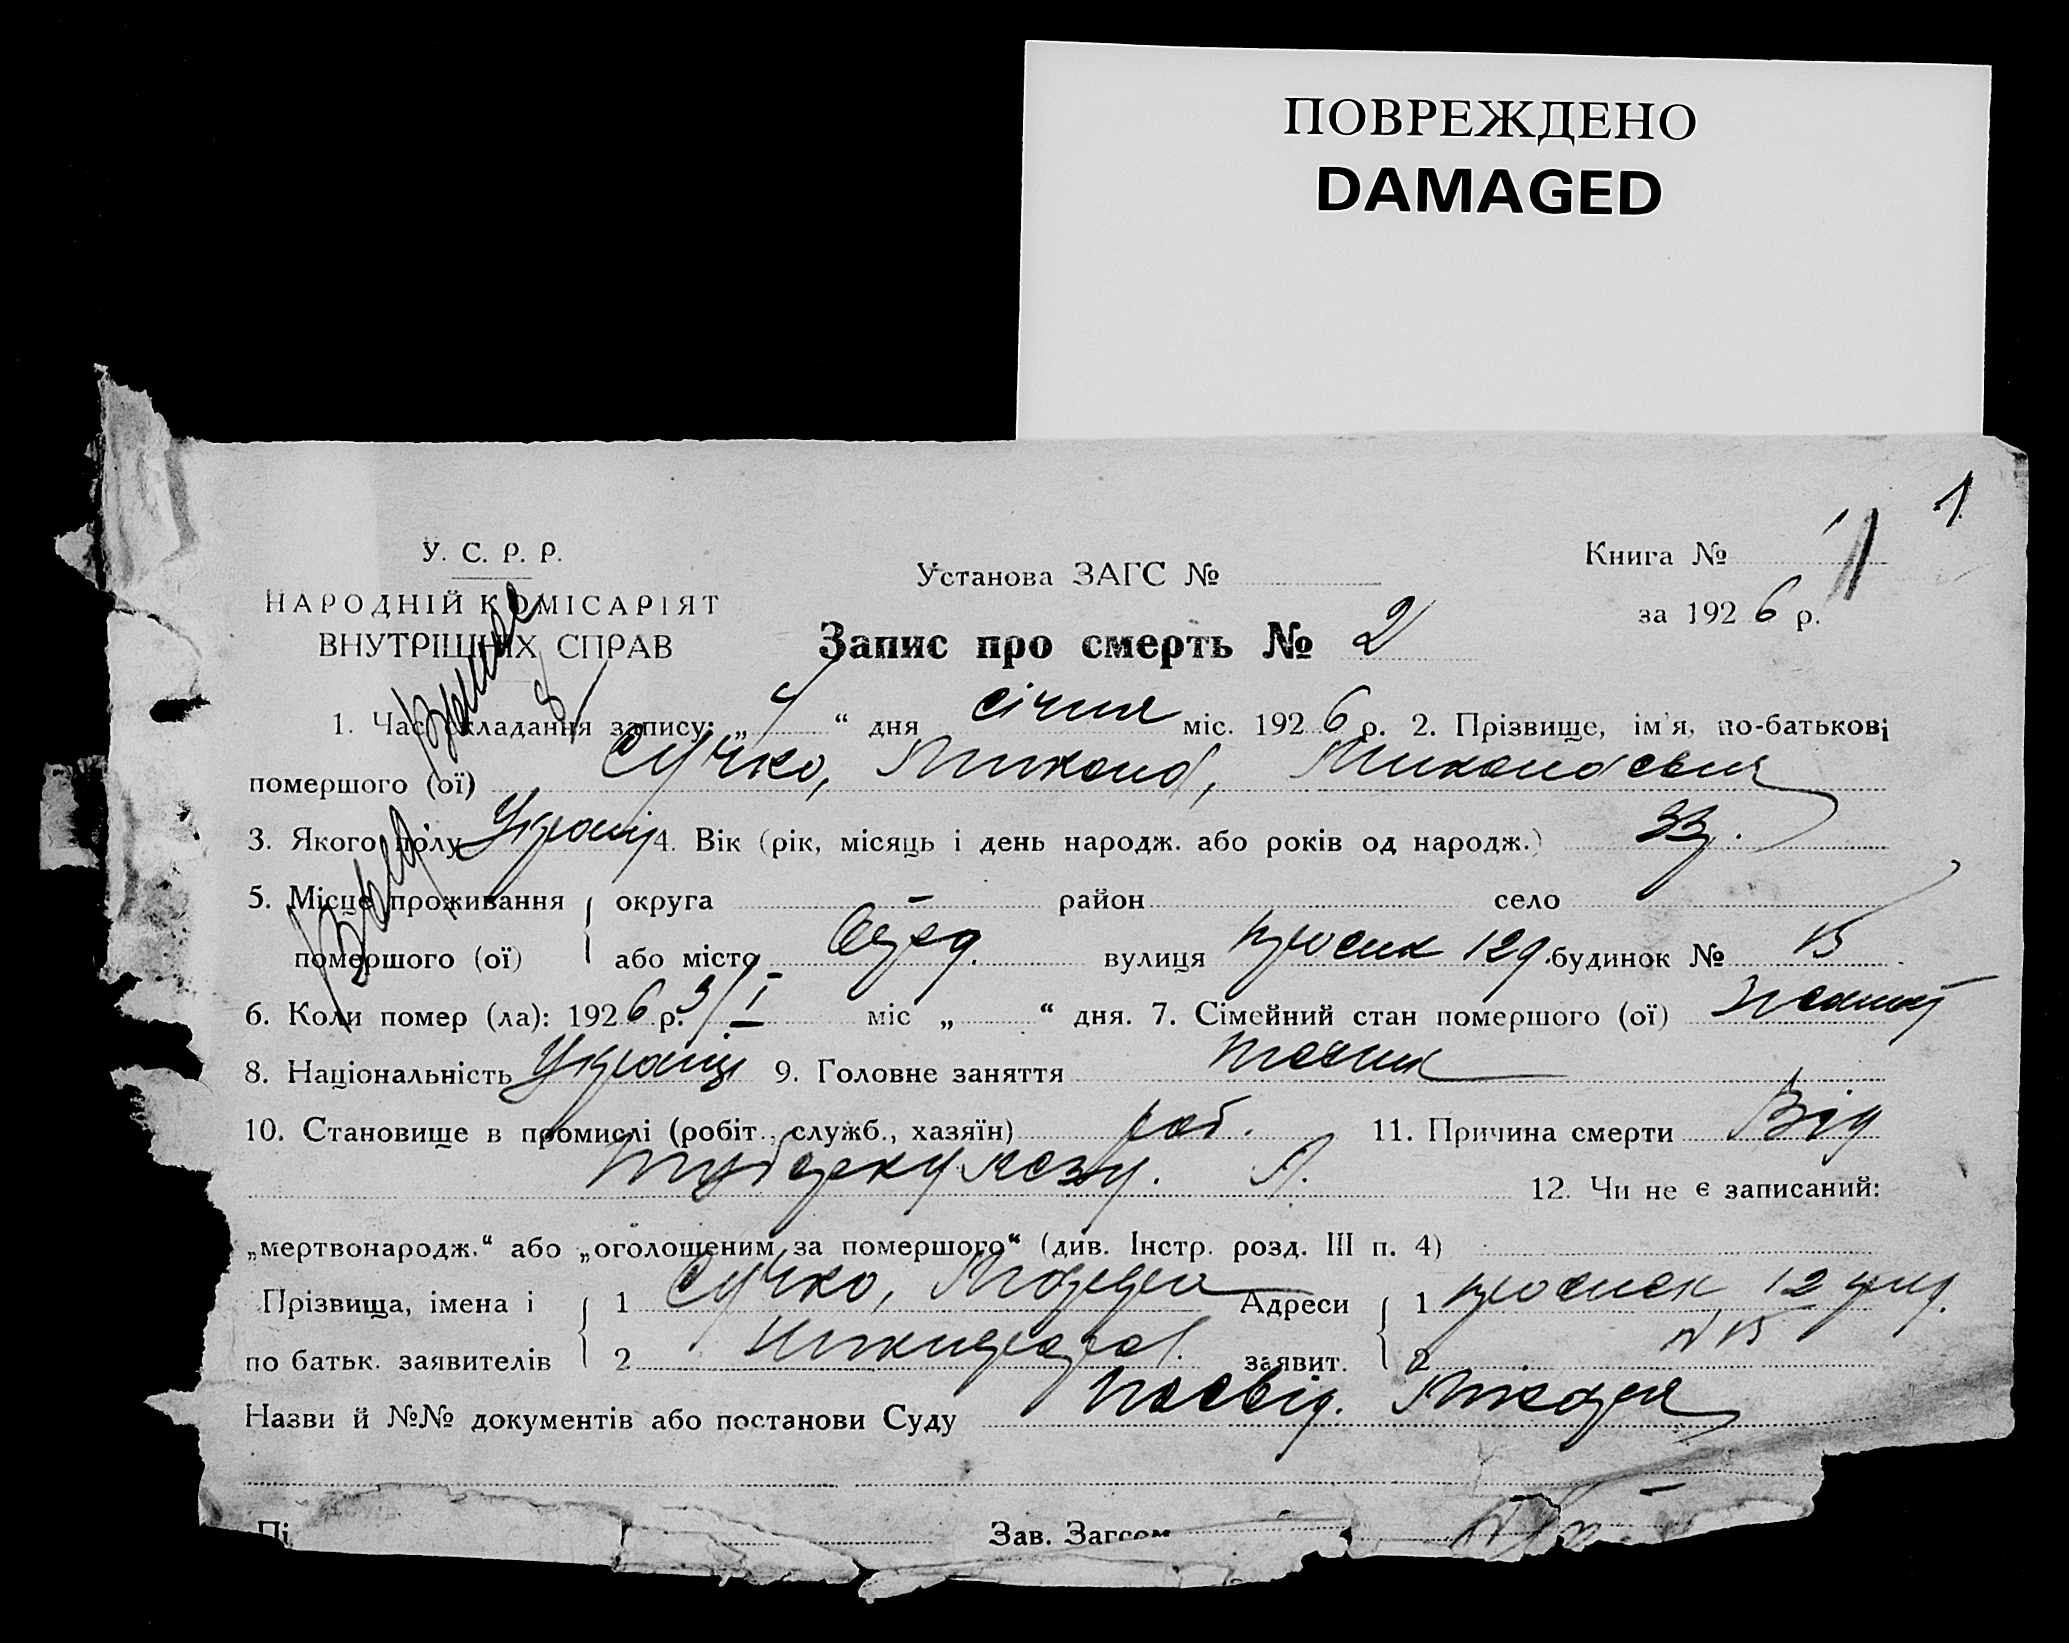 ПОВРЕЖДЕНО
DAMAGED
1
У. С. Р. Р.
НАРОДНІЙ КОМІСАРІЯТ
ВНУТРІШНІХ СПРАВ
Установа ЗАГС №
Книга №
за 1926 р.
Запис про смерть № 2
1. Час складання запису: „4“ дня січня міс. 1926 р. 2. Прізвище, ім'я, по-батькові
помершого (ої) Сучко, Микола, Миколаєвич
3. Якого полу 4. Вік (рік, місяць і день народж. або років од народж.) 33 р.
5. Місце проживання округа – район село
помершого (ої) або місто вулиця просік 12 д. будинок № 15
6. Коли помер (ла): 1926 р. 3/I міс „ “ дня. 7. Сімейний стан помершого (ої) Жонат
8. Національність Україн 9. Головне заняття
10. Становище в промислі (робіт., служб., хазяїн) роб. 11. Причина смерти Від
туберкулезу. Л. 12. Чи не є записаний:
„мертвонародж.“ або „оголошеним за помершого“ (див. Інстр. розд. III п. 4)
Прізвища, імена і 1 Сучко, Адреси 1 просік 12
№ 15
по батьк. заявителів 2 заявит. 2
Назви й №№ документів або постанови Суду Посвід.
Пі
Зав. Загсом